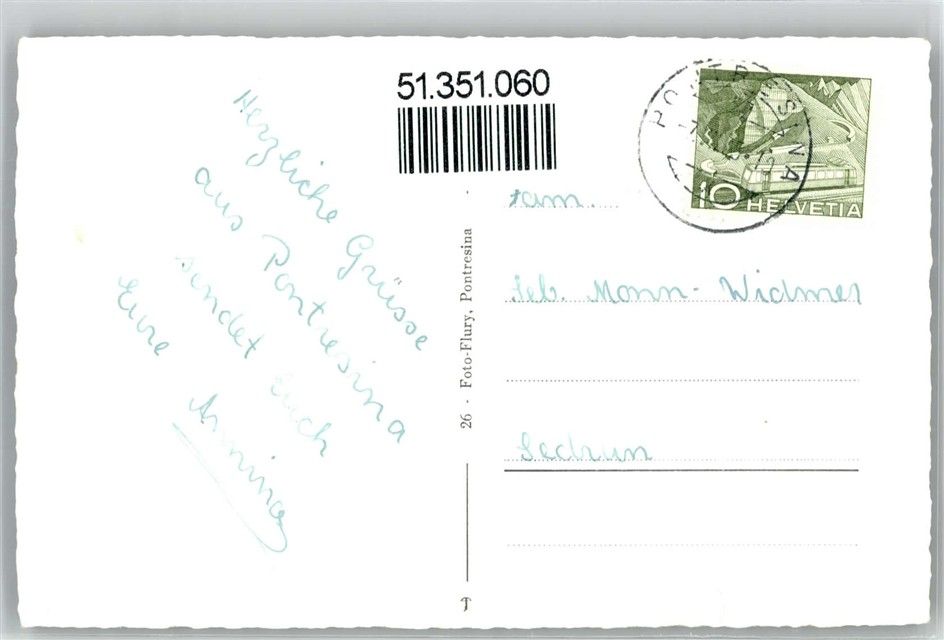 Herzliche Grüsse
aus Pontresina
sendet Euch
Eure
Armina
51.351.060
26 · Foto-Flury, Pontresina
PONTRESINA
10 HELVETIA
Fam.
Seb. Monn-Widmer
Sedrun